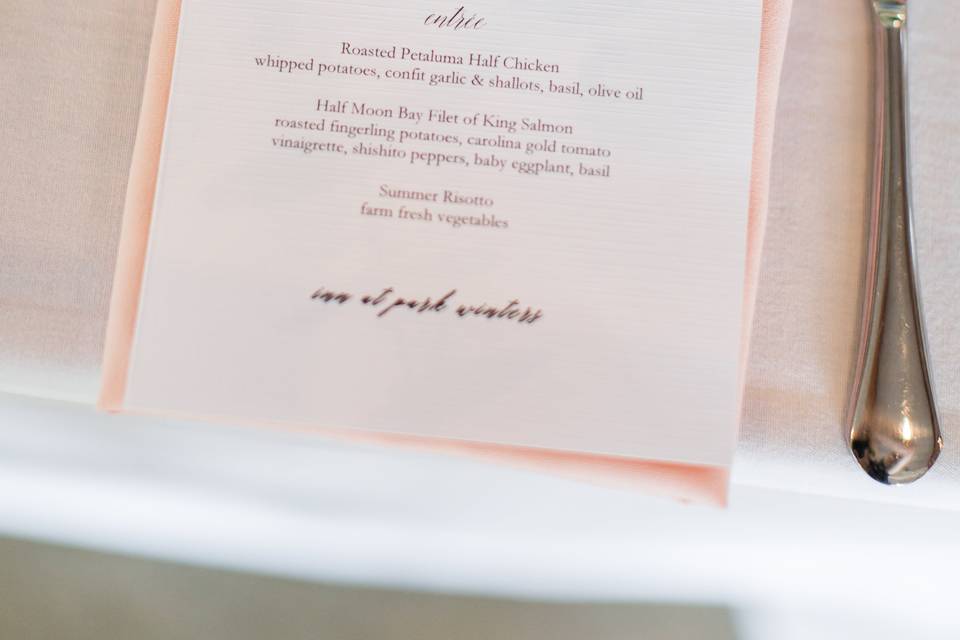 entrée
Roasted Petaluma Half Chicken
whipped potatoes, confit garlic & shallots, basil, olive oil
Half Moon Bay Filet of King Salmon
roasted fingerling potatoes, carolina gold tomato
vinaigrette, shishito peppers, baby eggplant, basil
Summer Risotto
farm fresh vegetables
inn at park winters